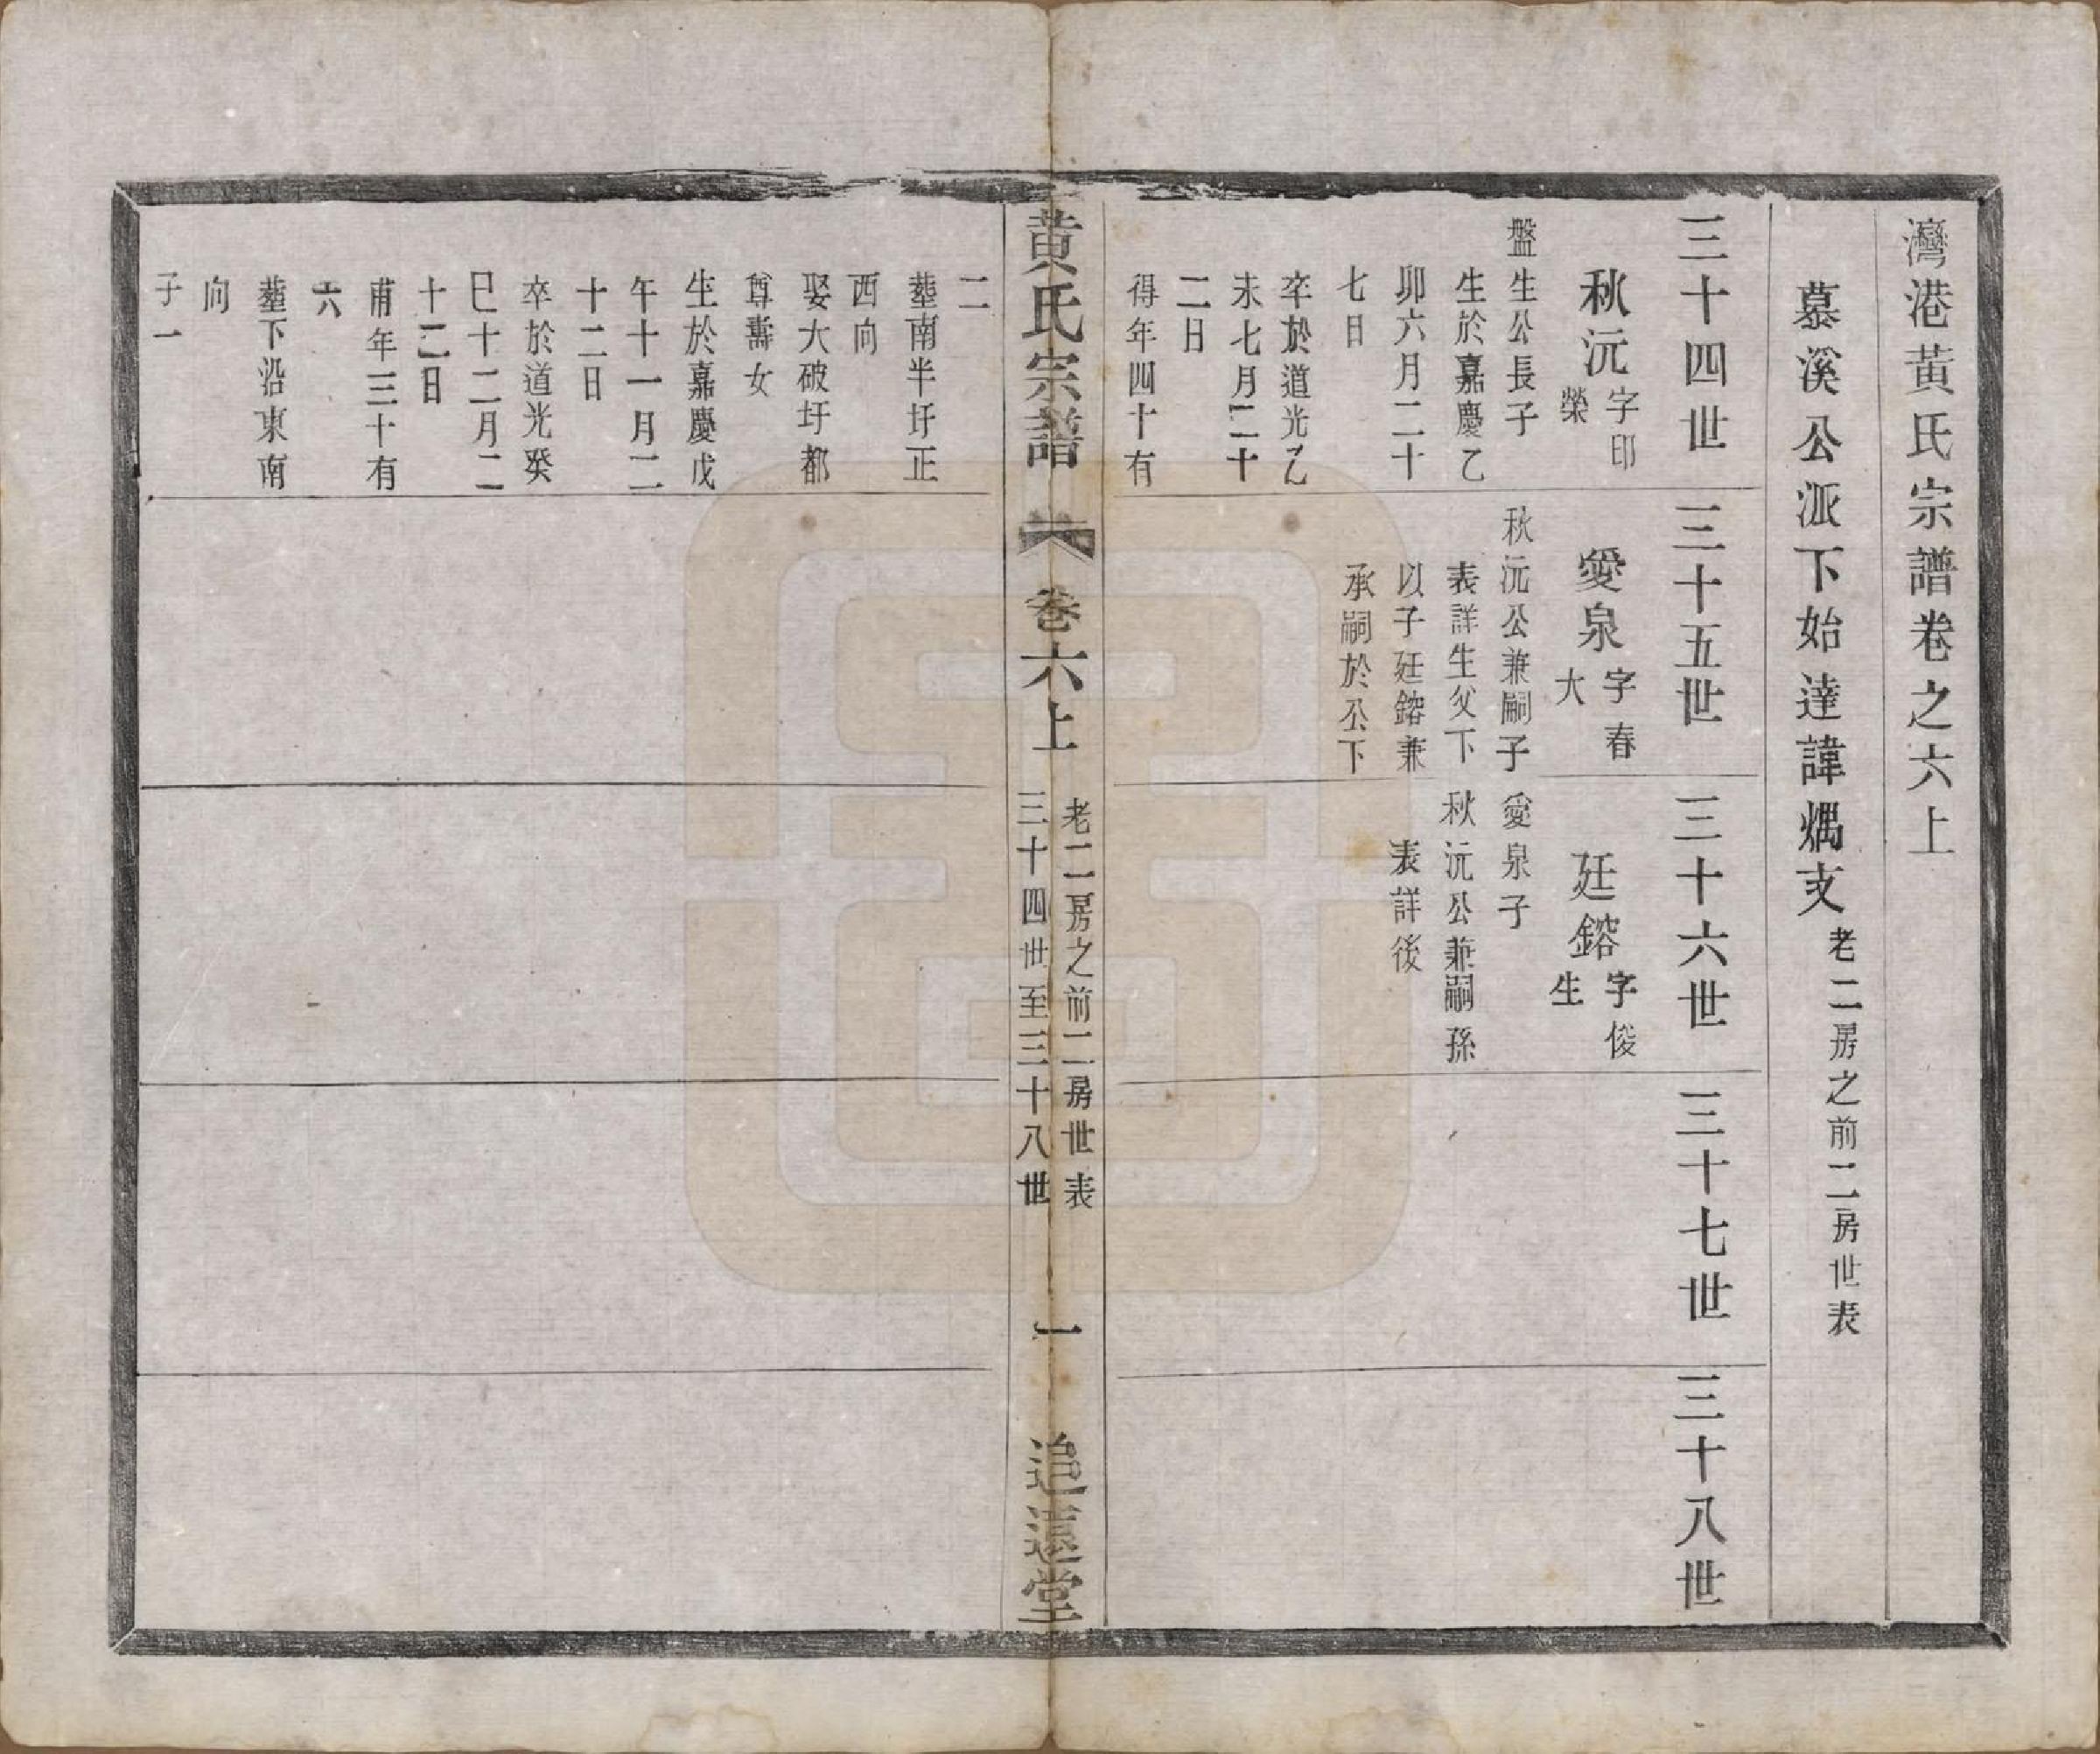 灣港黃氏宗譜卷之六上
慕溪公派下始達諱燤支老二房之前二房世表
三十四世
三十五世
三十六世
三十七世
三十八世
秋沅字印榮
盤生公長子
生於嘉慶乙
卯六月二十
七日
卒於道光乙
未七月二十
二日
得年四十有
愛泉字春大
秋沅公兼嗣子
表詳生父下
以子廷鎔兼
承嗣於公下
廷鎔字俊生
愛泉子
秋沅公兼嗣孫
表詳後
黃氏宗譜
卷六上
老二房之前二房世表
三十四世至三十八世
一
追遠堂
二
塟南半圩正
西向
娶大破圩都
尊壽女
生於嘉慶戊
午十一月二
十二日
卒於道光癸
巳十二月二
十二日
甫年三十有
六
塟下沿東南
向
子一